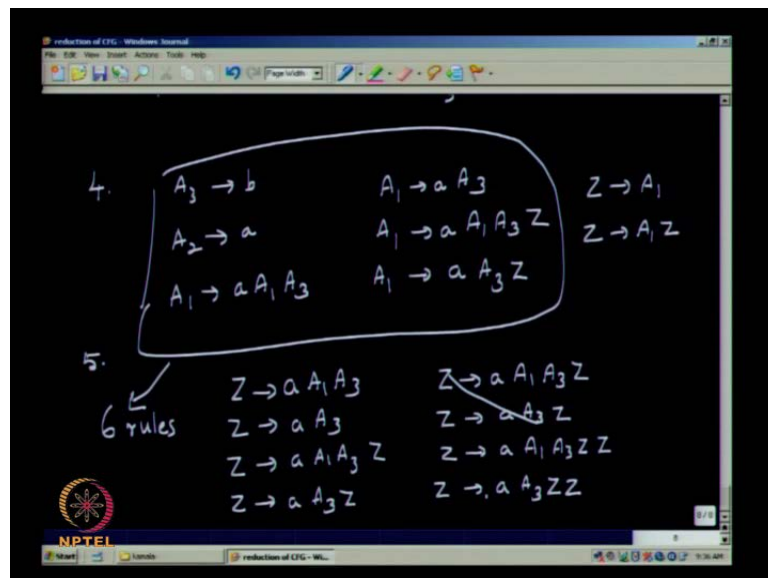 reduction of CFG - Windows Journal
File Edit View Insert Actions Tools Help
Page Width
4. A₃ → b A₁ → a A₃ Z → A₁
A₂ → a A₁ → a A₁ A₃ Z Z → A₁ Z
A₁ → a A₁ A₃ A₁ → a A₃ Z
5.
6 rules
Z → a A₁ A₃ Z → a A₁ A₃ Z
Z → a A₃ Z → a A₃ Z
Z → a A₁ A₃ Z Z → a A₁ A₃ Z Z
Z → a A₃ Z Z → a A₃ Z Z
8/8
8
NPTEL
Start kamala- reduction of CFG - Wi... 9:36 AM